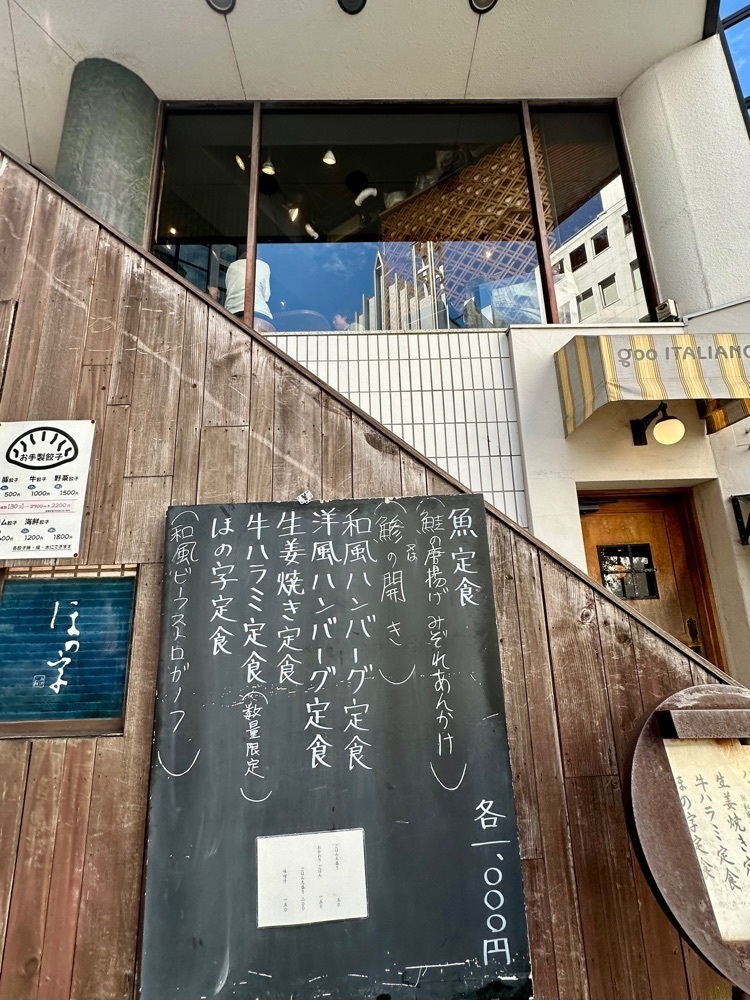 魚定食
(鮭の唐揚げ みぞれあんかけ)
(鯵の開き)
又は
和風ハンバーグ定食
洋風ハンバーグ定食
生姜焼き定食
牛ハラミ定食(数量限定)
ほの字定食
(和風ビーフストロガノフ)
各一、〇〇〇円
goo ITALIANO
お手製餃子
豚餃子 牛餃子 野菜餃子
500円 1000円 1500円
海鮮餃子
1200円 1800円
ほの字
生姜焼き定
牛ハラミ定食
ほの字定食